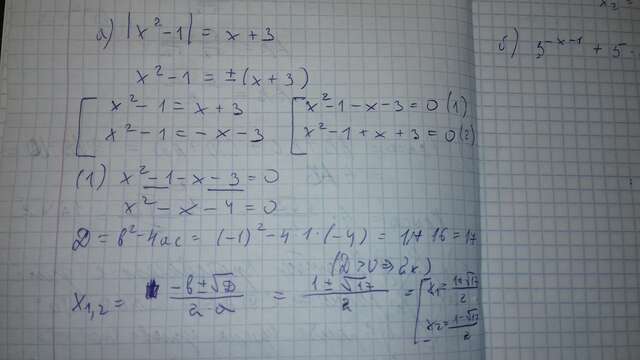 а) |x² - 1| = x + 3
x² - 1 = ±(x + 3)
[ x² - 1 = x + 3 [ x² - 1 - x - 3 = 0 (1)
x² - 1 = -x - 3 x² - 1 + x + 3 = 0 (2)
(1) x² - 1 - x - 3 = 0
x² - x - 4 = 0
D = b² - 4ac = (-1)² - 4·1·(-4) = 1 + 16 = 17
(D > 0 ⇒ 2к)
x₁,₂ = (-b ± √D)/(2·a) = (1 ± √17)/2 = [ x₁ = (1 + √17)/2
x₂ = (1 - √17)/2
x₂ =
б) 3^(-x-1) + 5